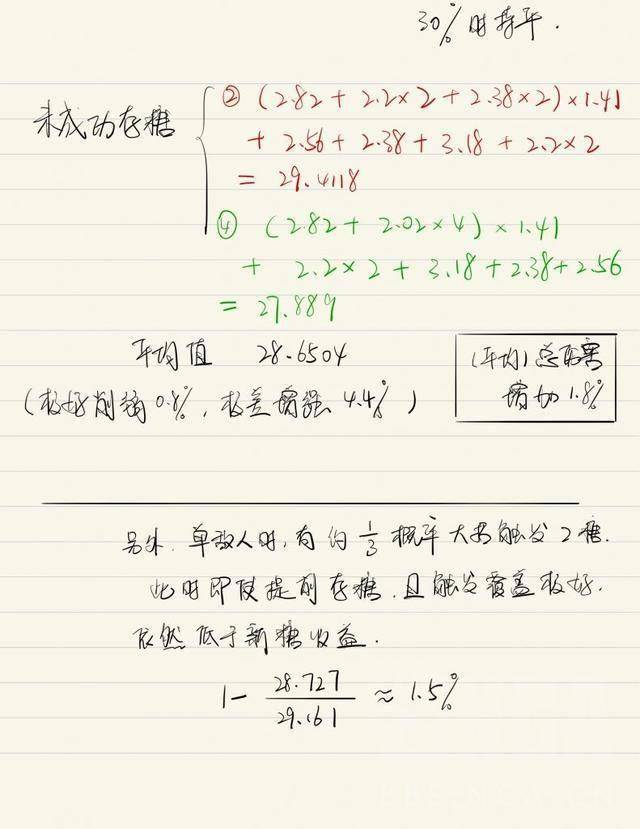 30% 时持平.
未成功存糖
② (2.82 + 2.2×2 + 2.38×2)×1.41
+ 2.56 + 2.38 + 3.18 + 2.2×2
= 29.4118
④ (2.82 + 2.02×4)×1.41
+ 2.2×2 + 3.18 + 2.38 + 2.56
= 27.889
平均值 28.6504
(平均) 总伤害
增加 1.8%
(极好削弱 0.8%, 极差增强 4.4%)
另外, 单敌人时, 有约 1/3 概率大招触发 2 糖.
此时即使提前存糖, 且触发覆盖极好.
依然低于新糖收益.
1 - 28.727/29.161 ≈ 1.5%